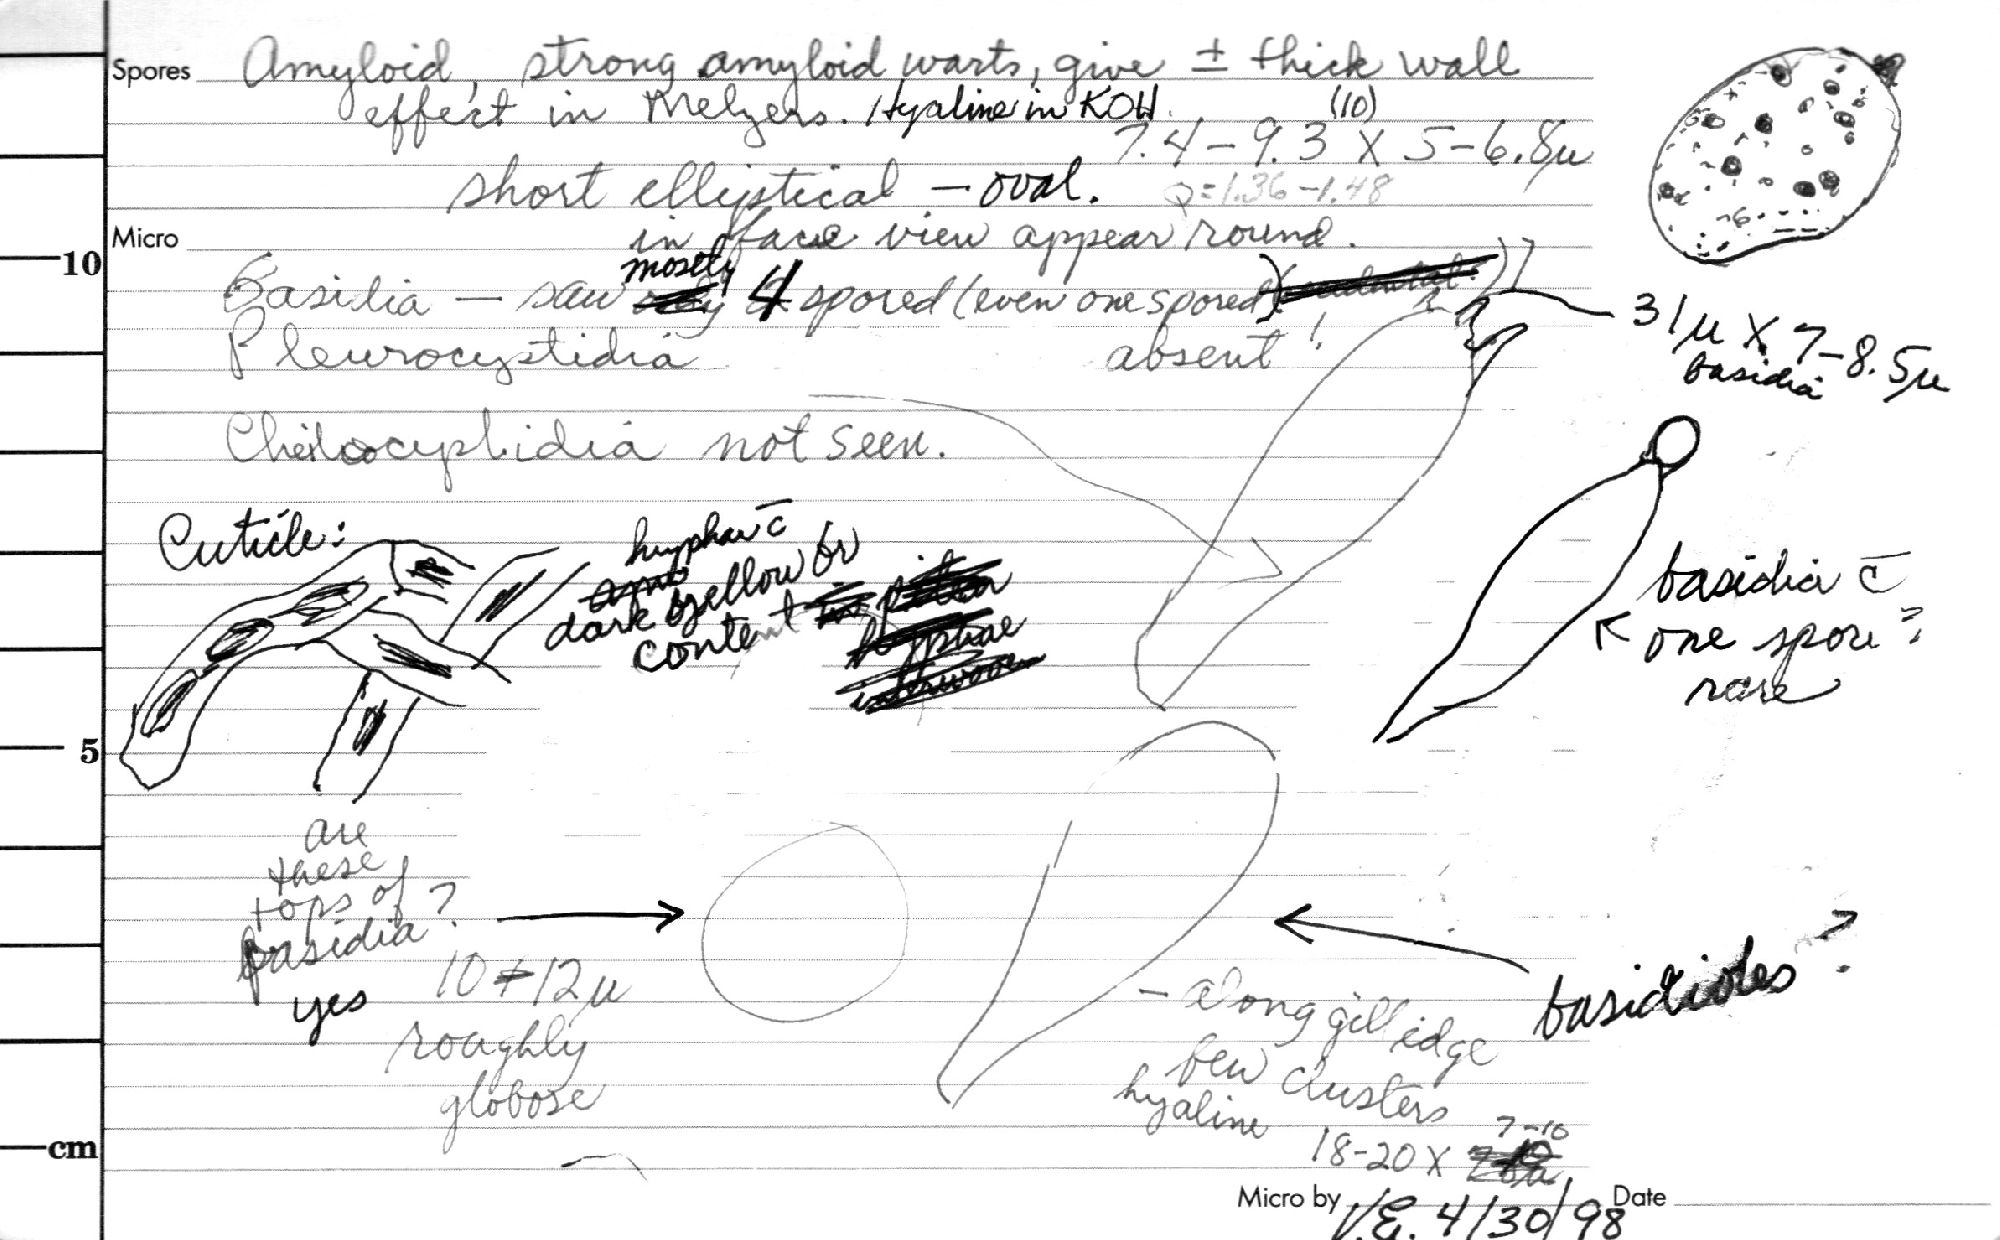 Spores Amyloid, strong amyloid warts, give ± thick wall
effect in Melzers. Hyaline in KOH. (10)
7.4 – 9.3 X 5 – 6.8µ
short elliptical – oval. Q = 1.36 – 1.48
Micro in face view appear round.
mostly
Basidia – saw 4 spored (even one spored)
31µ X 7–8.5µ
basidia
Pleurocystidia absent!
Cheilocystidia not seen.
Cuticle:
hyphae c̄
dark yellow br
content
basidia c̄
one spore?
rare
are
these
tops of
basidia?
yes
10 + 12µ
roughly
globose
basidioles?
– along gill edge
few clusters
hyaline
7–10
18–20 X
10
5
cm
Micro by V.E. 4/30/98 Date